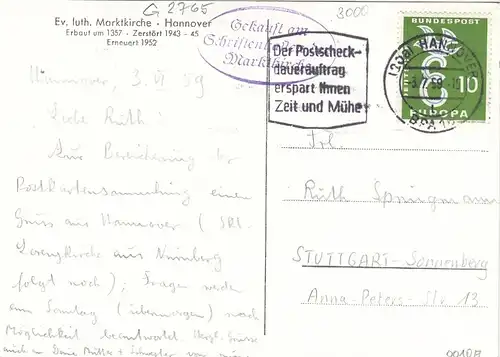 G 2765
3000
Ev. luth. Marktkirche · Hannover
Erbaut um 1357 · Zerstört 1943 - 45
Erneuert 1952
Gekauft am
Schriften
Marktkirche
Der Postscheck-
dauerauftrag
erspart Ihnen
Zeit und Mühe
HANNOVER
DEUTSCHE BUNDESPOST
10
EUROPA
Hannover, 3. VI 59
Liebe Ruth!
Zur Bereicherung der
Postkartensammlung einen
Gruss aus Hannover (
Lorenzkirche aus Nürnberg
folgt noch); Fragen werden
am Sonntag (übermorgen) nach
Möglichkeit beantwortet. Herzl. Grüsse
auch an Deine Mutter + Schwester von
Frl.
Ruth
STUTTGART-Sonnenberg
Anna-Peters-Str. 13